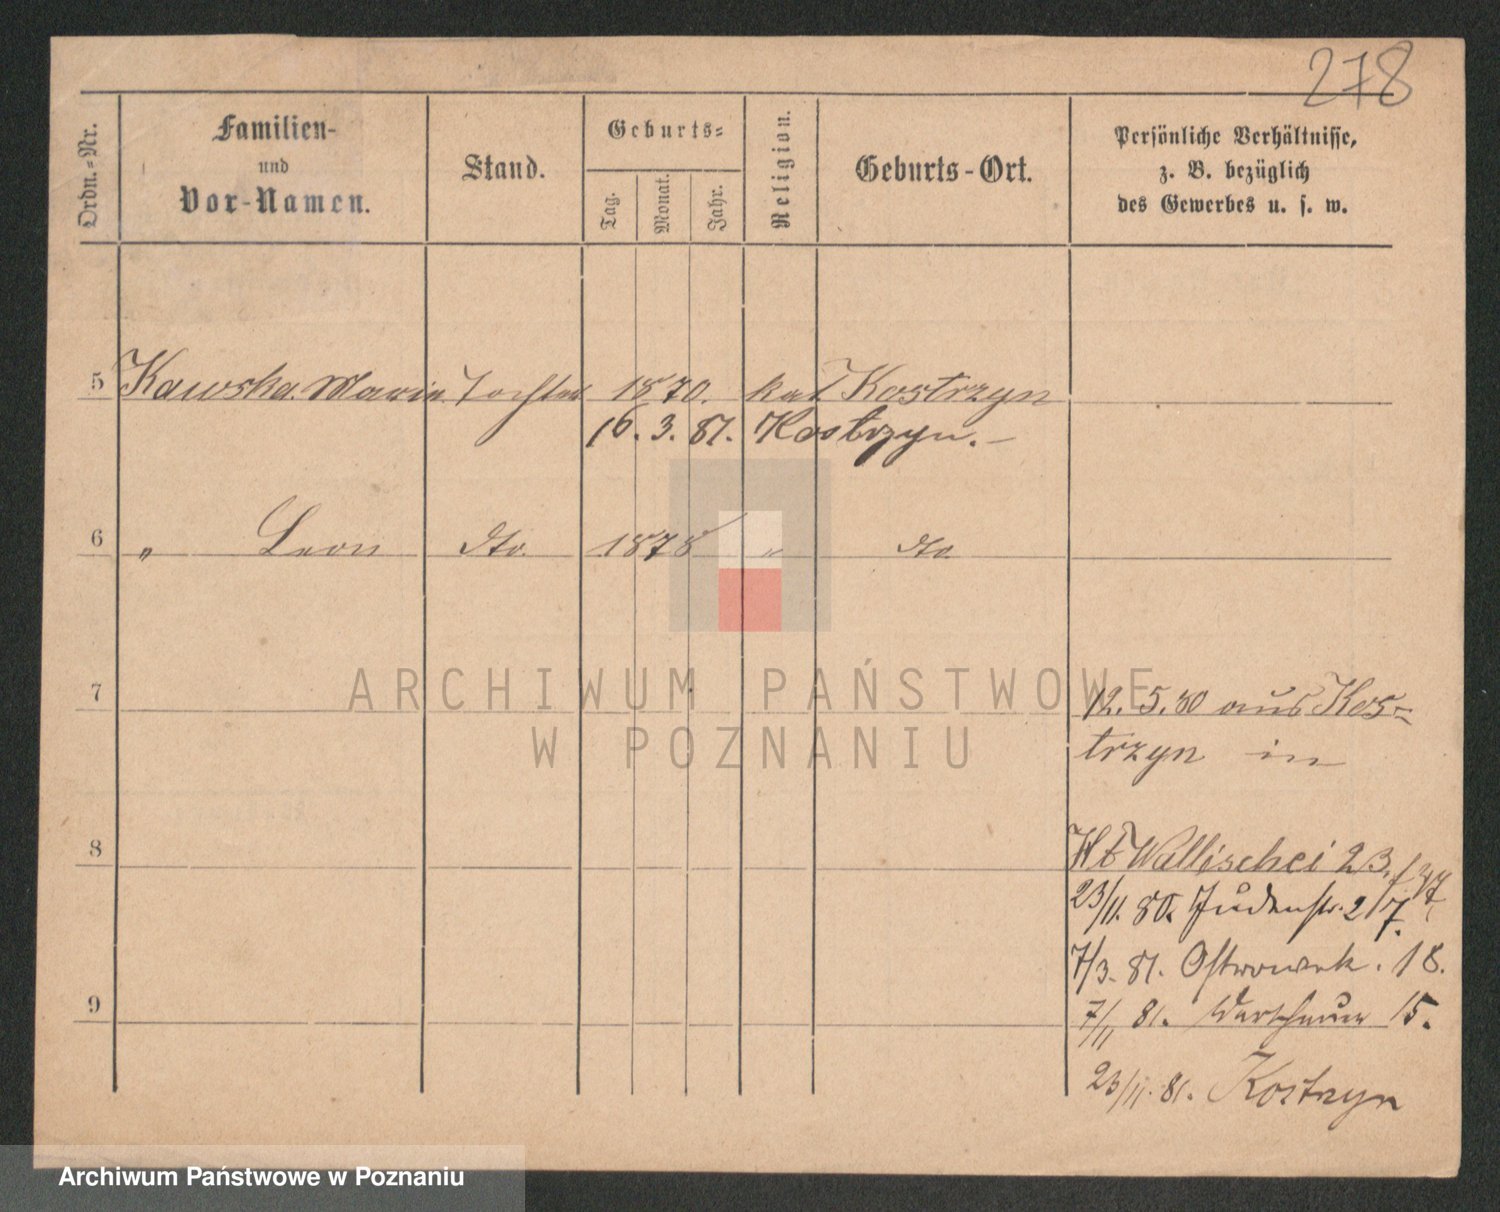 278
Ordn.-Nr.
Familien-
und
Vor-Namen.
Stand.
Geburts-
Tag.
Monat.
Jahr.
Religion.
Geburts-Ort.
Persönliche Verhältnisse,
z. B. bezüglich
des Gewerbes u. s. w.
5 Kawska Marie Tochter 1870. kat Kostrzyn
16. 3. 81. Kostrzyn. –
6 " Leon dto. 1878 " dto
7
12. 5. 80 aus Kos=
trzyn in
8
Wallischei 23.
23/11. 80. Judenstr. 217.
7/3. 81. Ostrowek. 18.
9
7/11 81. Warschauer 15.
23/11. 81. Kostrzyn
ARCHIWUM PAŃSTWOWE
W POZNANIU
Archiwum Państwowe w Poznaniu